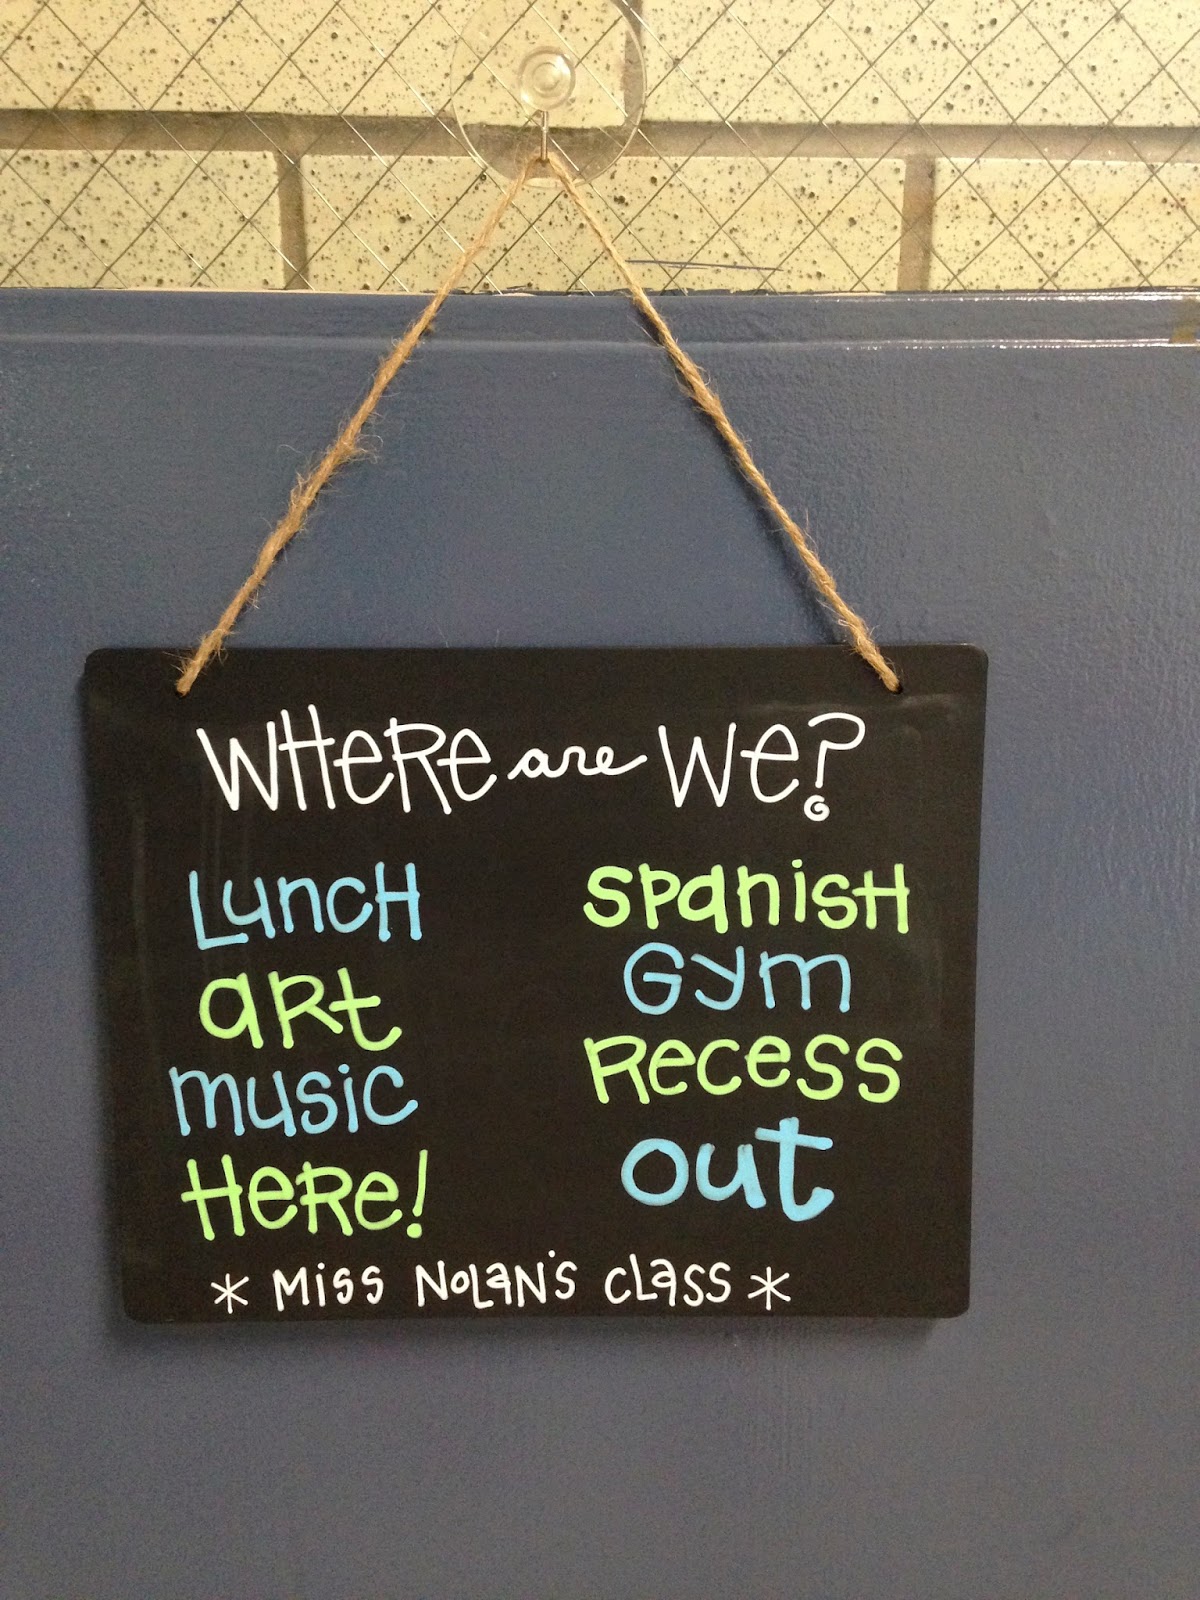 WHeRe are We?
Lunch
aRt
music
HeRe!
spanisH
Gym
Recess
out
* Miss Nolan's class *